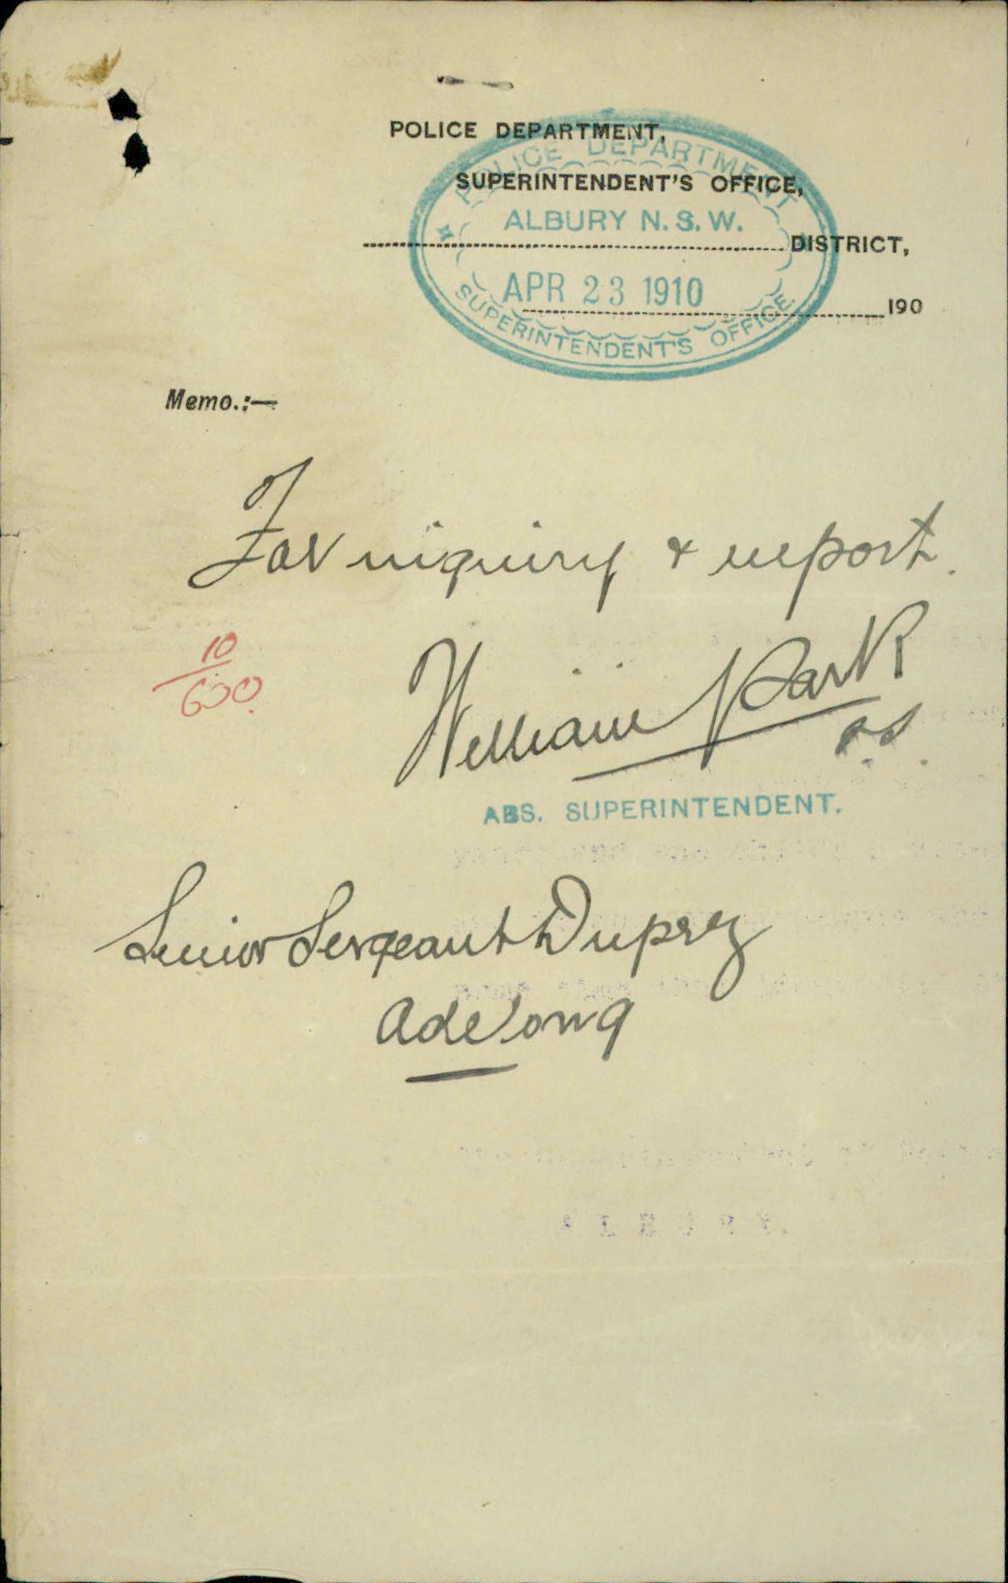 POLICE DEPARTMENT,
SUPERINTENDENT'S OFFICE,
DISTRICT,
190
POLICE DEPARTMENT
ALBURY N.S.W.
APR 23 1910
SUPERINTENDENT'S OFFICE
Memo.:—
For inquiry & report.
10
600
William Park
ABS. SUPERINTENDENT.
Senior Sergeant Duprez
Adelong